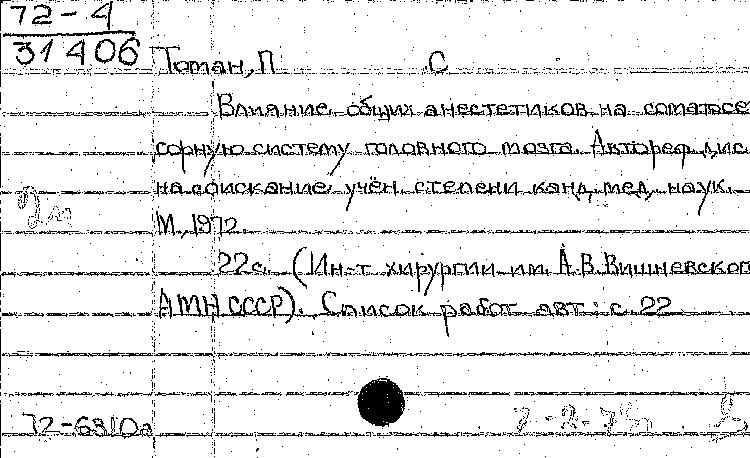 72-4
31406
Томан, П С
Влияние общих анестетиков на соматосе
сорную систему головного мозга. Автореф. дис.
на соискание учён. степени канд. мед. наук.
М., 1972.
22с. (Ин-т хирургии им. А.В. Вишневского
АМН СССР). Список работ авт.: с. 22
72-6310а